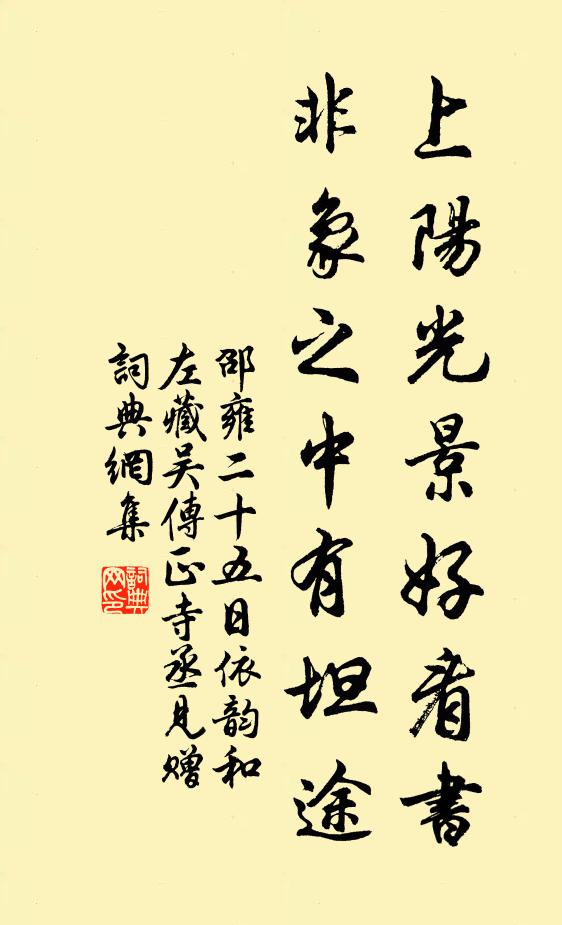 上陽光景好看書
非象之中有坦途
邵雍二十五日依韵和
左藏吴傳正寺丞見赠
詞典網集
詞典網印